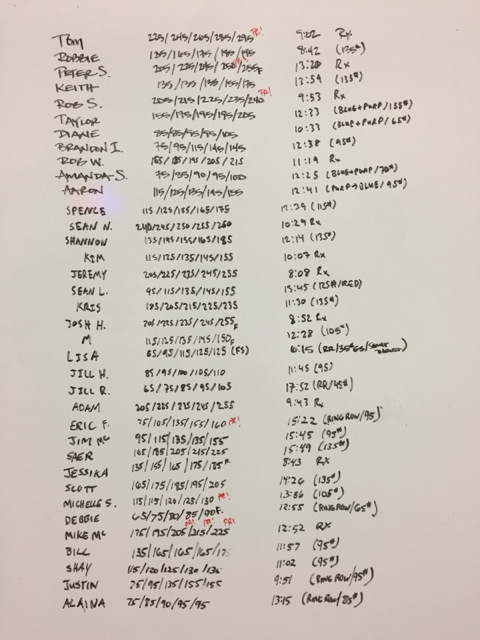 TOM 225/245/265/285/295 PR! 9:02 Rx
ROBBIE 135/165/175/185/195 8:42 (135#)
PETER S. 205/225/245/250/255F 13:20 Rx
KEITH 135/135/135/155/175 13:59 (135#)
ROB S. 205/215/225/235/240 PR! 9:53 Rx
TAYLOR 155/175/195/195/205 12:33 (BLUE+PURP/155#)
DIANE 85/85/95/95/105 10:33 (BLUE+PURP/65#)
BRANDON I. 75/95/115/145/145 12:38 (95#)
ROB W. 165/185/195/205/215 11:19 Rx
AMANDA S. 75/85/90/95/100 12:25 (BLUE+PURP/70#)
AARON 115/125/135/145/155 12:41 (PURP+BLUE/95#)
SPENCE 115/125/155/165/175 12:39 (115#)
SEAN N. 240/245/250/255/260 10:29 Rx
SHANNON 135/145/155/165/185 12:14 (135#)
KIM 115/125/135/145/155 10:07 Rx
JEREMY 205/225/235/245/255 8:08 Rx
SEAN L. 95/115/135/145/155 13:45 (125#/RED)
KRIS 185/205/215/225/235 11:30 (135#)
JOSH H. 205/225/235/245/255F 8:52 Rx
M 115/125/135/145/150F 12:28 (105#)
LISA 65/95/115/125/125 (FS) 6:15 (RR/35#ES/
JILL H. 85/95/100/105/110 11:45 (95)
JILL R. 65/75/85/95/105 17:52 (RR/45#)
ADAM 205/225/235/245/255 9:43 Rx
ERIC F. 75/105/135/155/160 PR! 15:22 (RINGROW/95)
JIM MC 95/115/135/135/155 15:45 (95#)
SAER 165/185/205/215/225 15:49 (135#)
JESSIKA 135/155/165/175/185F 8:43 Rx
SCOTT 165/175/185/195/205 14:26 (135#)
MICHELLE S. 115/115/120/125/130 PR! 13:56 (105#)
DEBBIE 65/75/80/85/90F. 12:55 (RINGROW/65#)
MIKE MC 175/195/205/215/225 PR! PR! PR! 12:52 RX
BILL 135/165/165/165/175 11:57 (95#)
SHAY 115/120/125/130/130 11:02 (95#)
JUSTIN 75/95/135/155/155 9:51 (RING ROW/95#)
ALAINA 75/85/90/95/95 13:15 (RINGROW/85#)